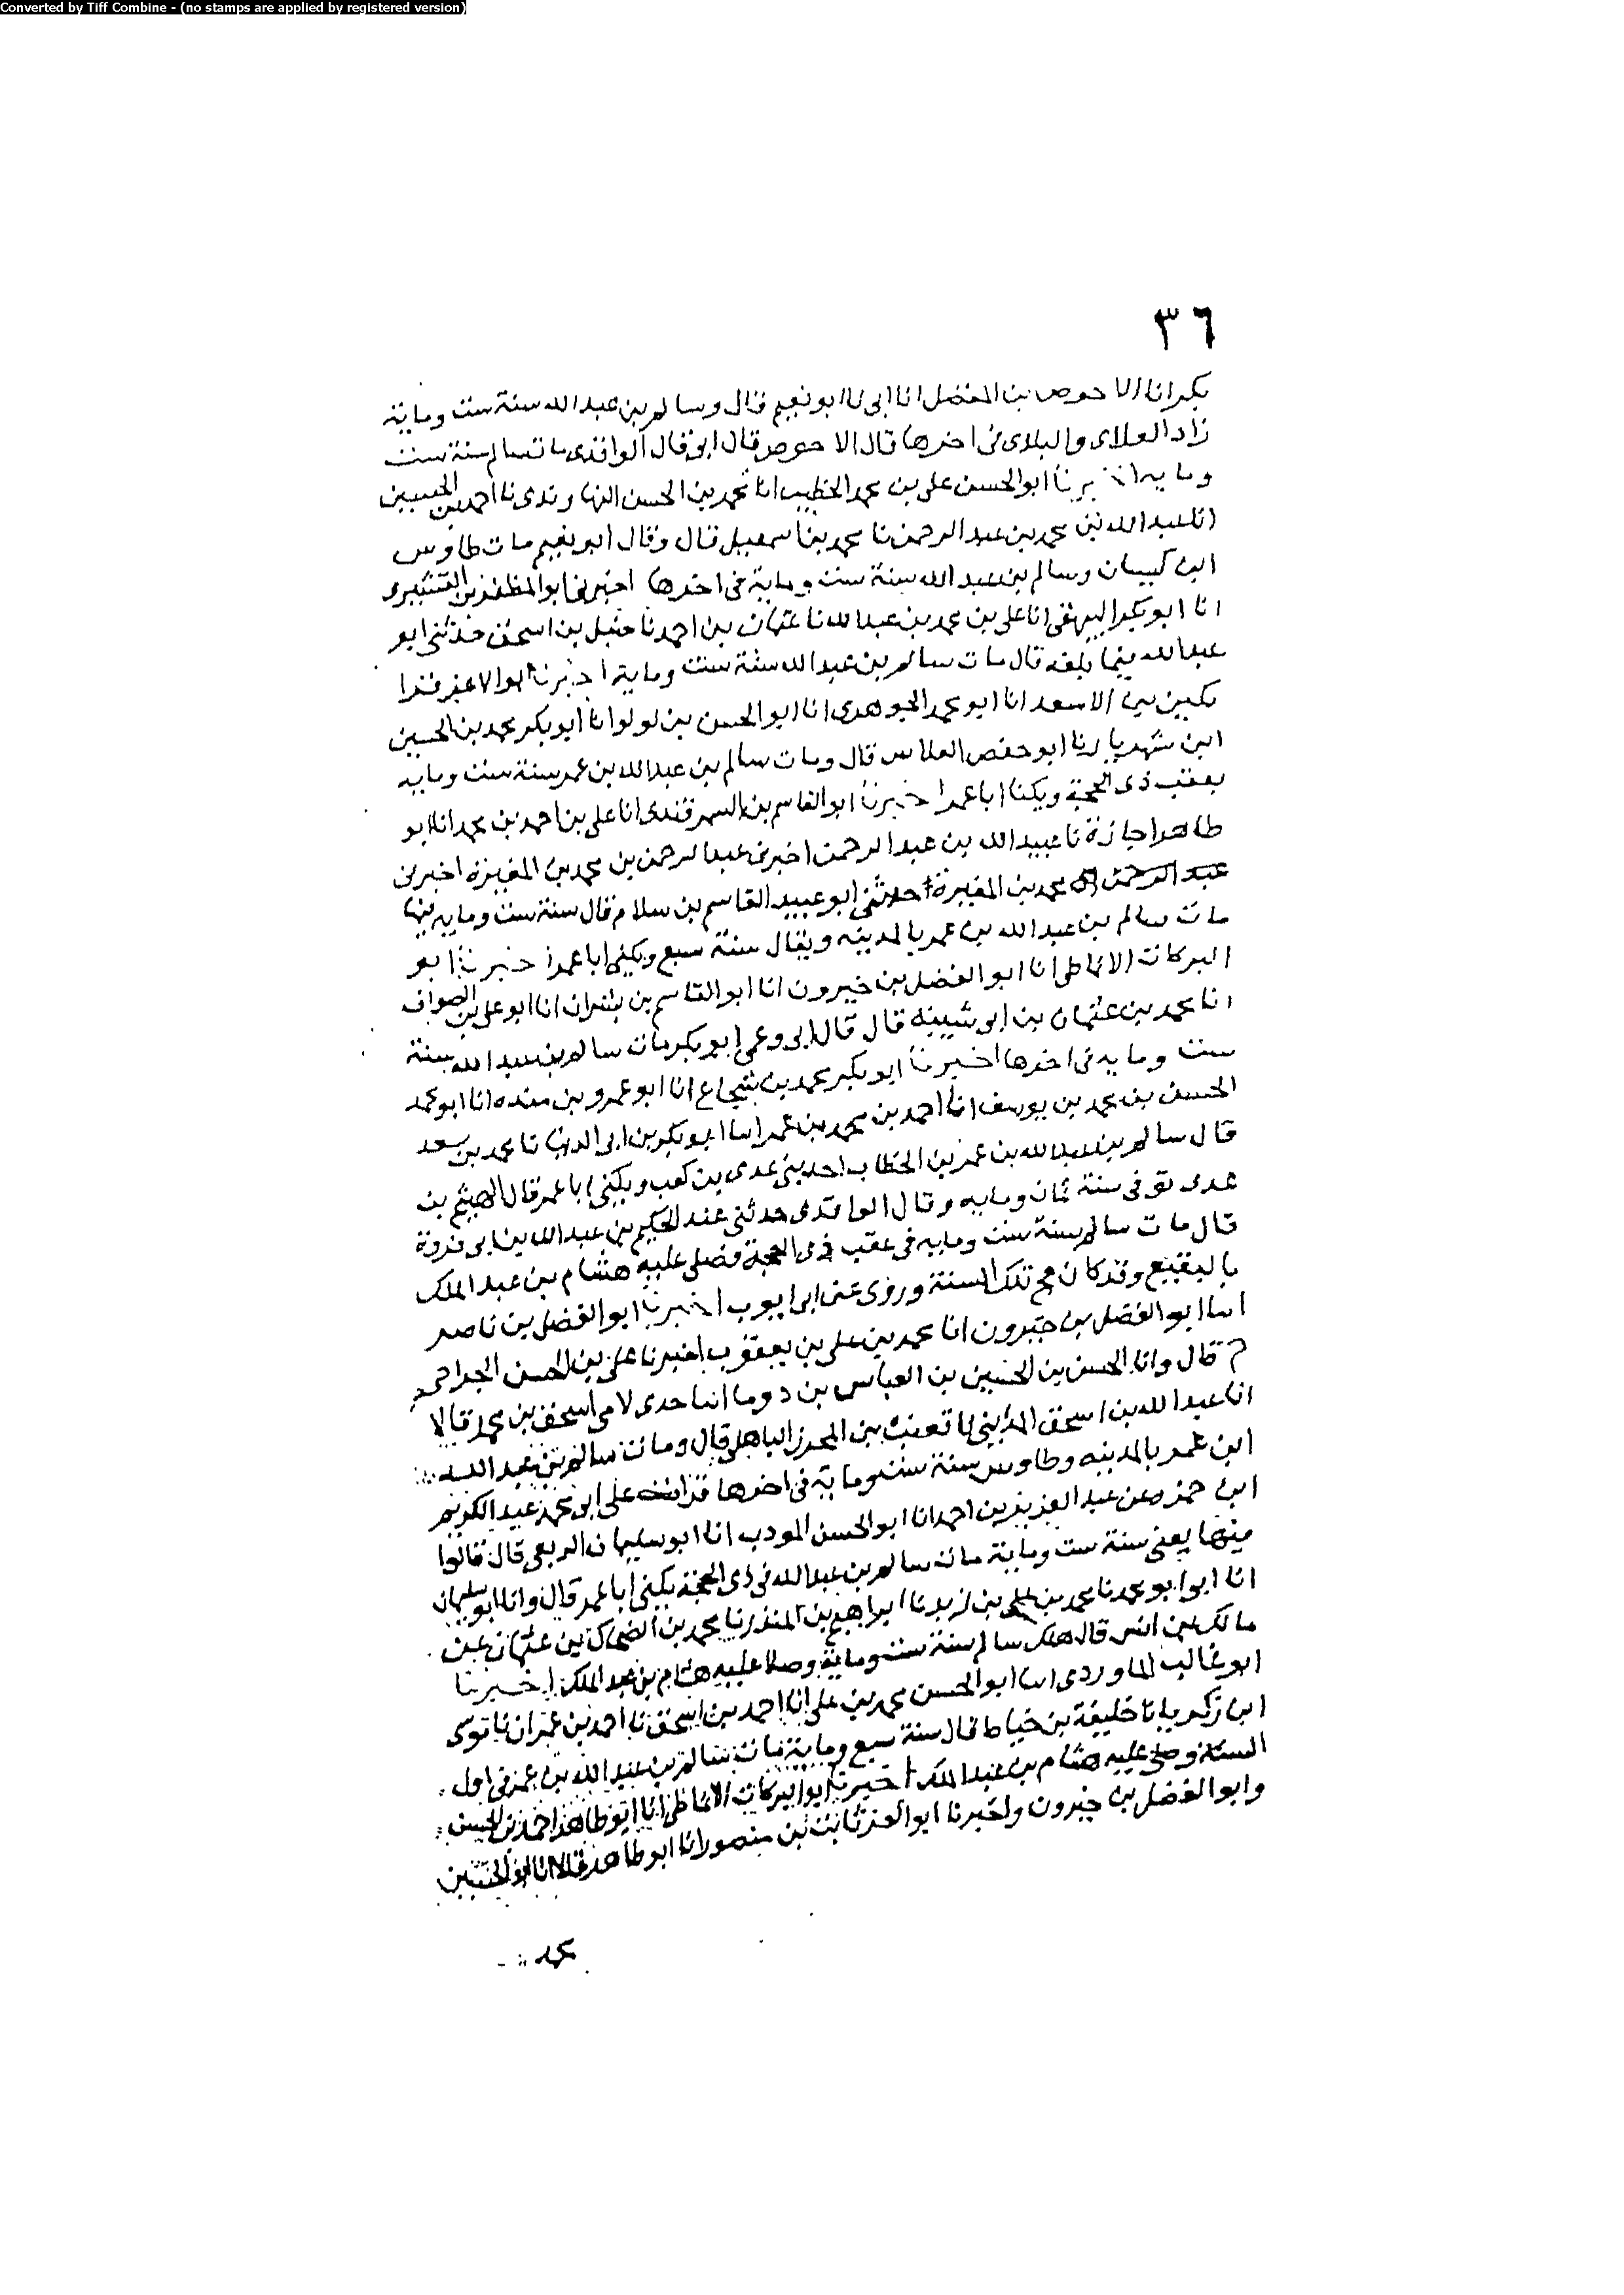 Converted by Tiff Combine - (no stamps are applied by registered version)
٣٦
بكر انا الاحوص بن المفضل انا ابى نا ابو نعيم قال وسالم بن عبد الله سنة ست وماية
زاد العلاى والبلاى فى اخرها قال الاحوص قال ابى قال الواقدى مات سالم سنة ست
وماية اخبرنا ابو الحسن على بن محمد الخطيب انا محمد بن الحسن النهاوندى نا احمد بن الحسين
انا عبد الله بن محمد بن عبد الرحمن نا محمد بن اسمعيل قال وقال ابو نعيم مات طاوس
ابن كيسان وسالم بن عبد الله سنة ست وماية فى اخرها اخبرنا ابو المظفر بن القشيرى
انا ابو بكر البيهقى انا على بن محمد بن عبد الله نا عثمان بن احمد نا حنبل بن اسحق حدثنى ابو
عبد الله فيما بلغه قال مات سالم بن عبد الله سنة ست وماية اخبرنا ابو الاعز قرا
تكين بن الاسعد انا ابو محمد الجوهرى انا ابو الحسن بن لولو انا ابو بكر محمد بن الحسين
ابن شهريار نا ابو حفص الفلاس قال ومات سالم بن عبد الله بن عمر سنة ست وماية
بعقب ذى الحجة ويكنا ابا عمر اخبرنا ابو القاسم بن السمرقندى انا على بن احمد بن محمد انا ابو
طاهر اجازة نا عبيد الله بن عبد الرحمن اخبرنى عبد الرحمن بن محمد بن المغيرة اخبرنى
محمد بن المغيرة حدثنى ابو عبيد القاسم بن سلام قال سنة ست وماية فيها
مات سالم بن عبد الله بن عمر بالمدينه ويقال سنة سبع ويكنى ابا عمر اخبرنا ابو
البركات الانماطى انا ابو الفضل بن خيرون انا ابو القاسم بن بشران انا ابو على بن الصواف
انا محمد بن عثمان بن ابى شيبه قال قال ابى وعمى ابو بكر مات سالم بن عبد الله سنة
ست وماية فى اخرها اخبرنا ابو بكر محمد بن شجاع انا ابو عمرو بن منده انا ابو محمد
الحسن بن محمد بن يوسف انا احمد بن محمد بن عمر انا ابو بكر بن ابى الدنيا نا محمد بن سعد
قال سالم بن عبد الله بن عمر بن الخطاب احد بنى عدى بن كعب ويكنى ابا عمر قال الهيثم بن
عدى توفى سنة ثمان وماية وقال الواقدى حدثنى عبد الحكيم بن عبد الله بن ابى فروة
قال مات سالم سنة ست وماية فى عقب ذى الحجة فصلى عليه هشام بن عبد الملك
بالبقيع وقد كان حج تلك السنة وروى عن ابى ايوب اخبرنا ابو الفضل بن ناصر
انا ابو الفضل بن خيرون انا محمد بن على بن يعقوب اخبرنا على بن الحسن الجراحى
ح قال وانا الحسن بن الحسين بن العباس بن دوما انا جدى لامى اسحق بن محمد قالا
انا عبد الله بن اسحق المداينى نا قعنب بن المحرز الباهلى قال ومات سالم بن عبد الله
ابن عمر بالمدينه وطاوس سنة ست وماية فى اخرها قرات على ابى محمد عبد الكريم
ابن حمزه عن عبد العزيز بن احمد انا ابو الحسن المودب انا ابو سليمان الربعى قال قالوا
فيها يعنى سنة ست وماية مات سالم بن عبد الله فى ذى الحجة يكنى ابا عمر قال وانا ابو سليمان
انا ابى ابو محمد نا محمد بن على بن زيد نا ابراهيم بن المنذر نا محمد بن الضحاك بن عثمان عن
مالك بن انس قال هلك سالم سنة ست وماية وصلا عليه هشام بن عبد الملك اخبرنا
ابو غالب الماوردى انا ابو الحسن محمد بن على انا احمد بن اسحق نا احمد بن عمران نا موسى
ابن زكريا نا خليفة بن خياط قال سنة سبع وماية مات سالم بن عبد الله بن عمر فى اول
السنة وصلى عليه هشام بن عبد الملك اخبرنا ابو البركات الانماطى انا ابو طاهر احمد بن الحسن
وابو الفضل بن خيرون واخبرنا ابو العز ثابت بن منصور انا ابو طاهر قالا انا ابو الحسين
محمد